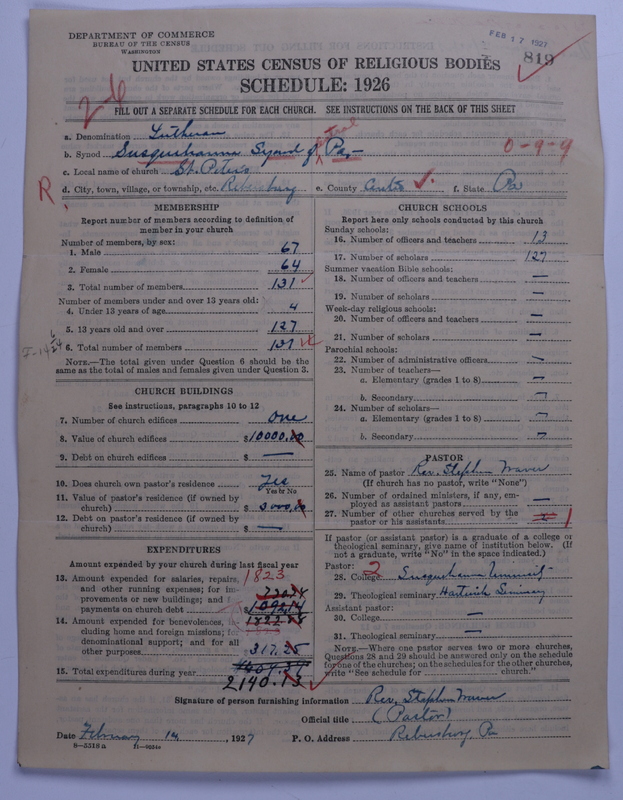 DEPARTMENT OF COMMERCE
BUREAU OF THE CENSUS
WASHINGTON
FEB 17 1927
819
UNITED STATES CENSUS OF RELIGIOUS BODIES
SCHEDULE: 1926
2-6
FILL OUT A SEPARATE SCHEDULE FOR EACH CHURCH. SEE INSTRUCTIONS ON THE BACK OF THIS SHEET
a. Denomination Lutheran
b. Synod Susquehanna Synod of Central Pa. 0-9-9
c. Local name of church St. Peter's
R
d. City, town, village, or township, etc. Rebersburg e. County Centre f. State Pa
MEMBERSHIP
Report number of members according to definition of member in your church
Number of members, by sex:
1. Male 67
2. Female 64
3. Total number of members 131
Number of members under and over 13 years old:
4. Under 13 years of age 4
5. 13 years old and over 127
6. Total number of members 131
NOTE.—The total given under Question 6 should be the same as the total of males and females given under Question 3.
CHURCH BUILDINGS
See instructions, paragraphs 10 to 12
7. Number of church edifices One
8. Value of church edifices $10000.00
9. Debt on church edifices $ —
10. Does church own pastor's residence Yes
Yes or No
11. Value of pastor's residence (if owned by church) $ 3000.00
12. Debt on pastor's residence (if owned by church) $ —
EXPENDITURES
Amount expended by your church during last fiscal year
13. Amount expended for salaries, repairs, and other running expenses; for improvements or new buildings; and for payments on church debt 1823
14. Amount expended for benevolences, including home and foreign missions; for denominational support; and for all other purposes 317.25
15. Total expenditures during year
2140.13
CHURCH SCHOOLS
Report here only schools conducted by this church
Sunday schools:
16. Number of officers and teachers 13
17. Number of scholars 127
Summer vacation Bible schools:
18. Number of officers and teachers —
19. Number of scholars —
Week-day religious schools:
20. Number of officers and teachers —
21. Number of scholars —
Parochial schools:
22. Number of administrative officers —
23. Number of teachers—
a. Elementary (grades 1 to 8) —
b. Secondary —
24. Number of scholars—
a. Elementary (grades 1 to 8) —
b. Secondary —
PASTOR
25. Name of pastor Rev. Stephen Traver
(If church has no pastor, write "None")
26. Number of ordained ministers, if any, employed as assistant pastors —
27. Number of other churches served by the pastor or his assistants 1
If pastor (or assistant pastor) is a graduate of a college or theological seminary, give name of institution below. (If not a graduate, write "No" in the space indicated.)
Pastor: 2
28. College Susquehanna University
29. Theological seminary Hartwick Seminary
Assistant pastor:
30. College —
31. Theological seminary —
NOTE.—Where one pastor serves two or more churches, Questions 28 and 29 should be answered only on the schedule for one of the churches; on the schedules for the other churches, write "See schedule for church."
Signature of person furnishing information Rev. Stephen Traver
Official title (Pastor)
Date February 14, 1927 P. O. Address Rebersburg Pa
8—5318 a